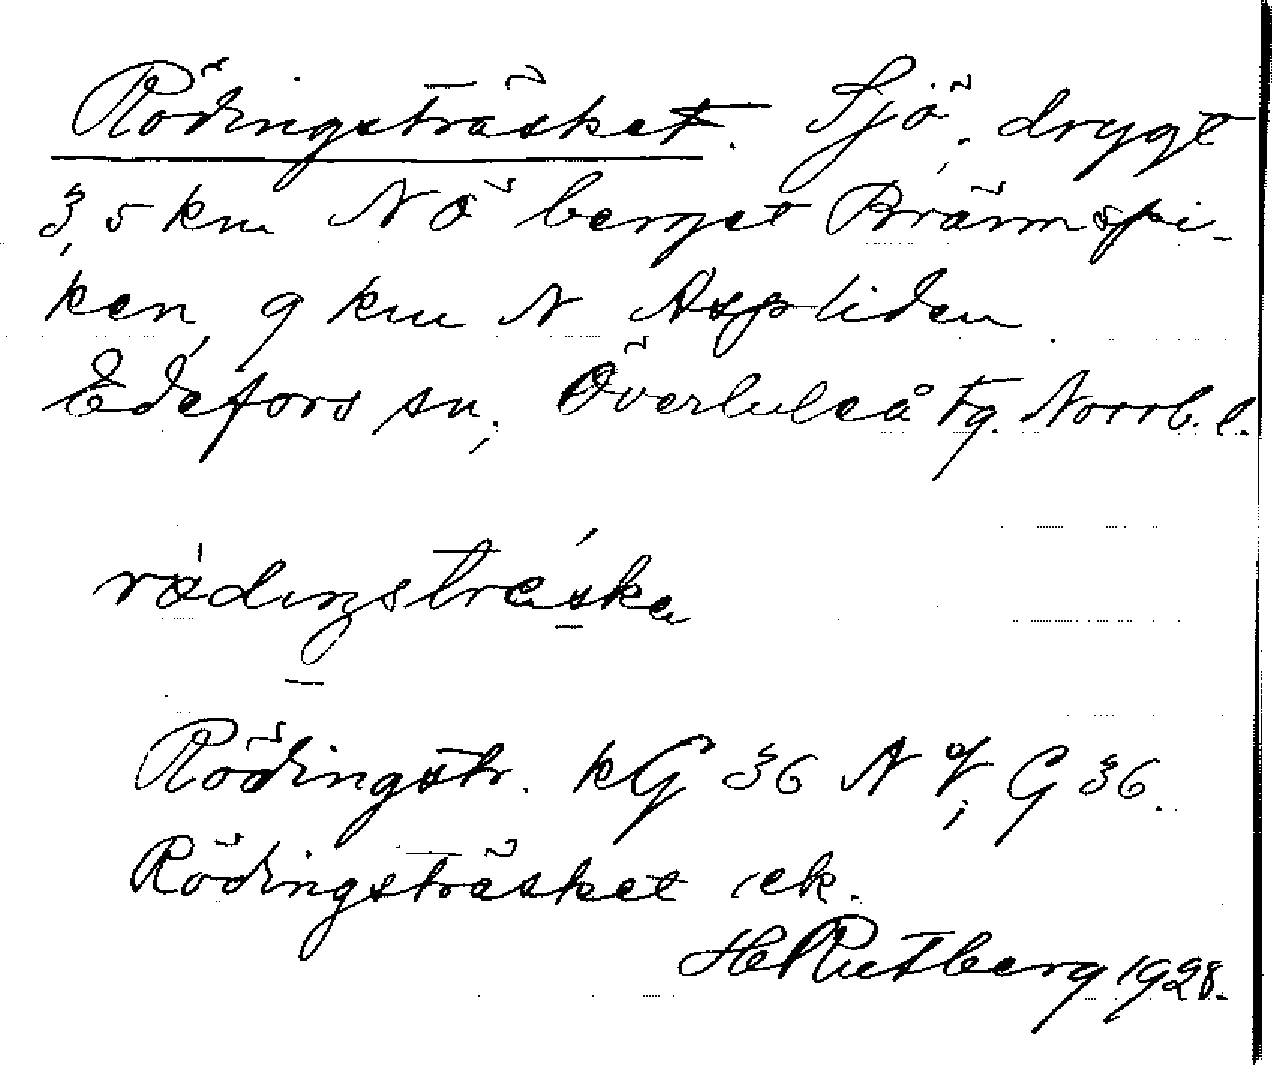 Rödingsträsket. Sjö, drygt
3,5 km NÖ berget Brännspi-
ken, 9 km N Aspliden.
Edefors sn, Överluleå tg. Norrb. l.
rö̀diŋstrǽska
Rödingstr. kG 36 N V, G 36.
Rödingsträsket ek.
HRutberg 1928.